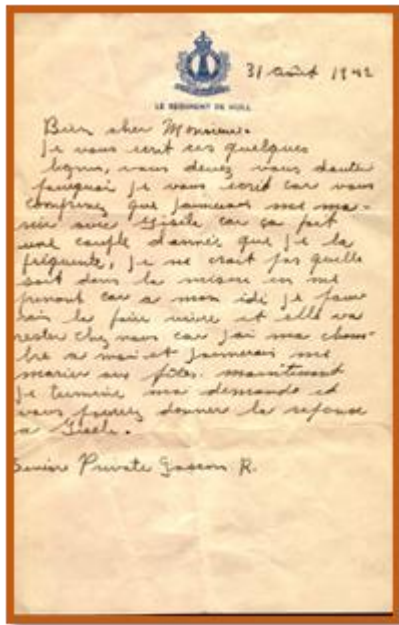 31 Août 1942
LE REGIMENT DE HULL
Bien cher Monsieur.
Je vous ecrit ces quelques
lignes, vous devez vous douter
pourquoi je vous ecrit car vous
comprenez que j'aimerais me ma-
rier avec Gisèle car ça fait
une couple d'année que je la
fréquente, je ne crait pas quelle
soit dans la misère en me
prenant car a mon idé je pour
rais la faire vivre et elle va
rester chez nous car j'ai ma cham-
bre a moi et j'aimerais me
marier aux fêtes. maintenant
je termine ma demande et
vous pourez donner la reponse
a Gisèle.
Private Gascon R.